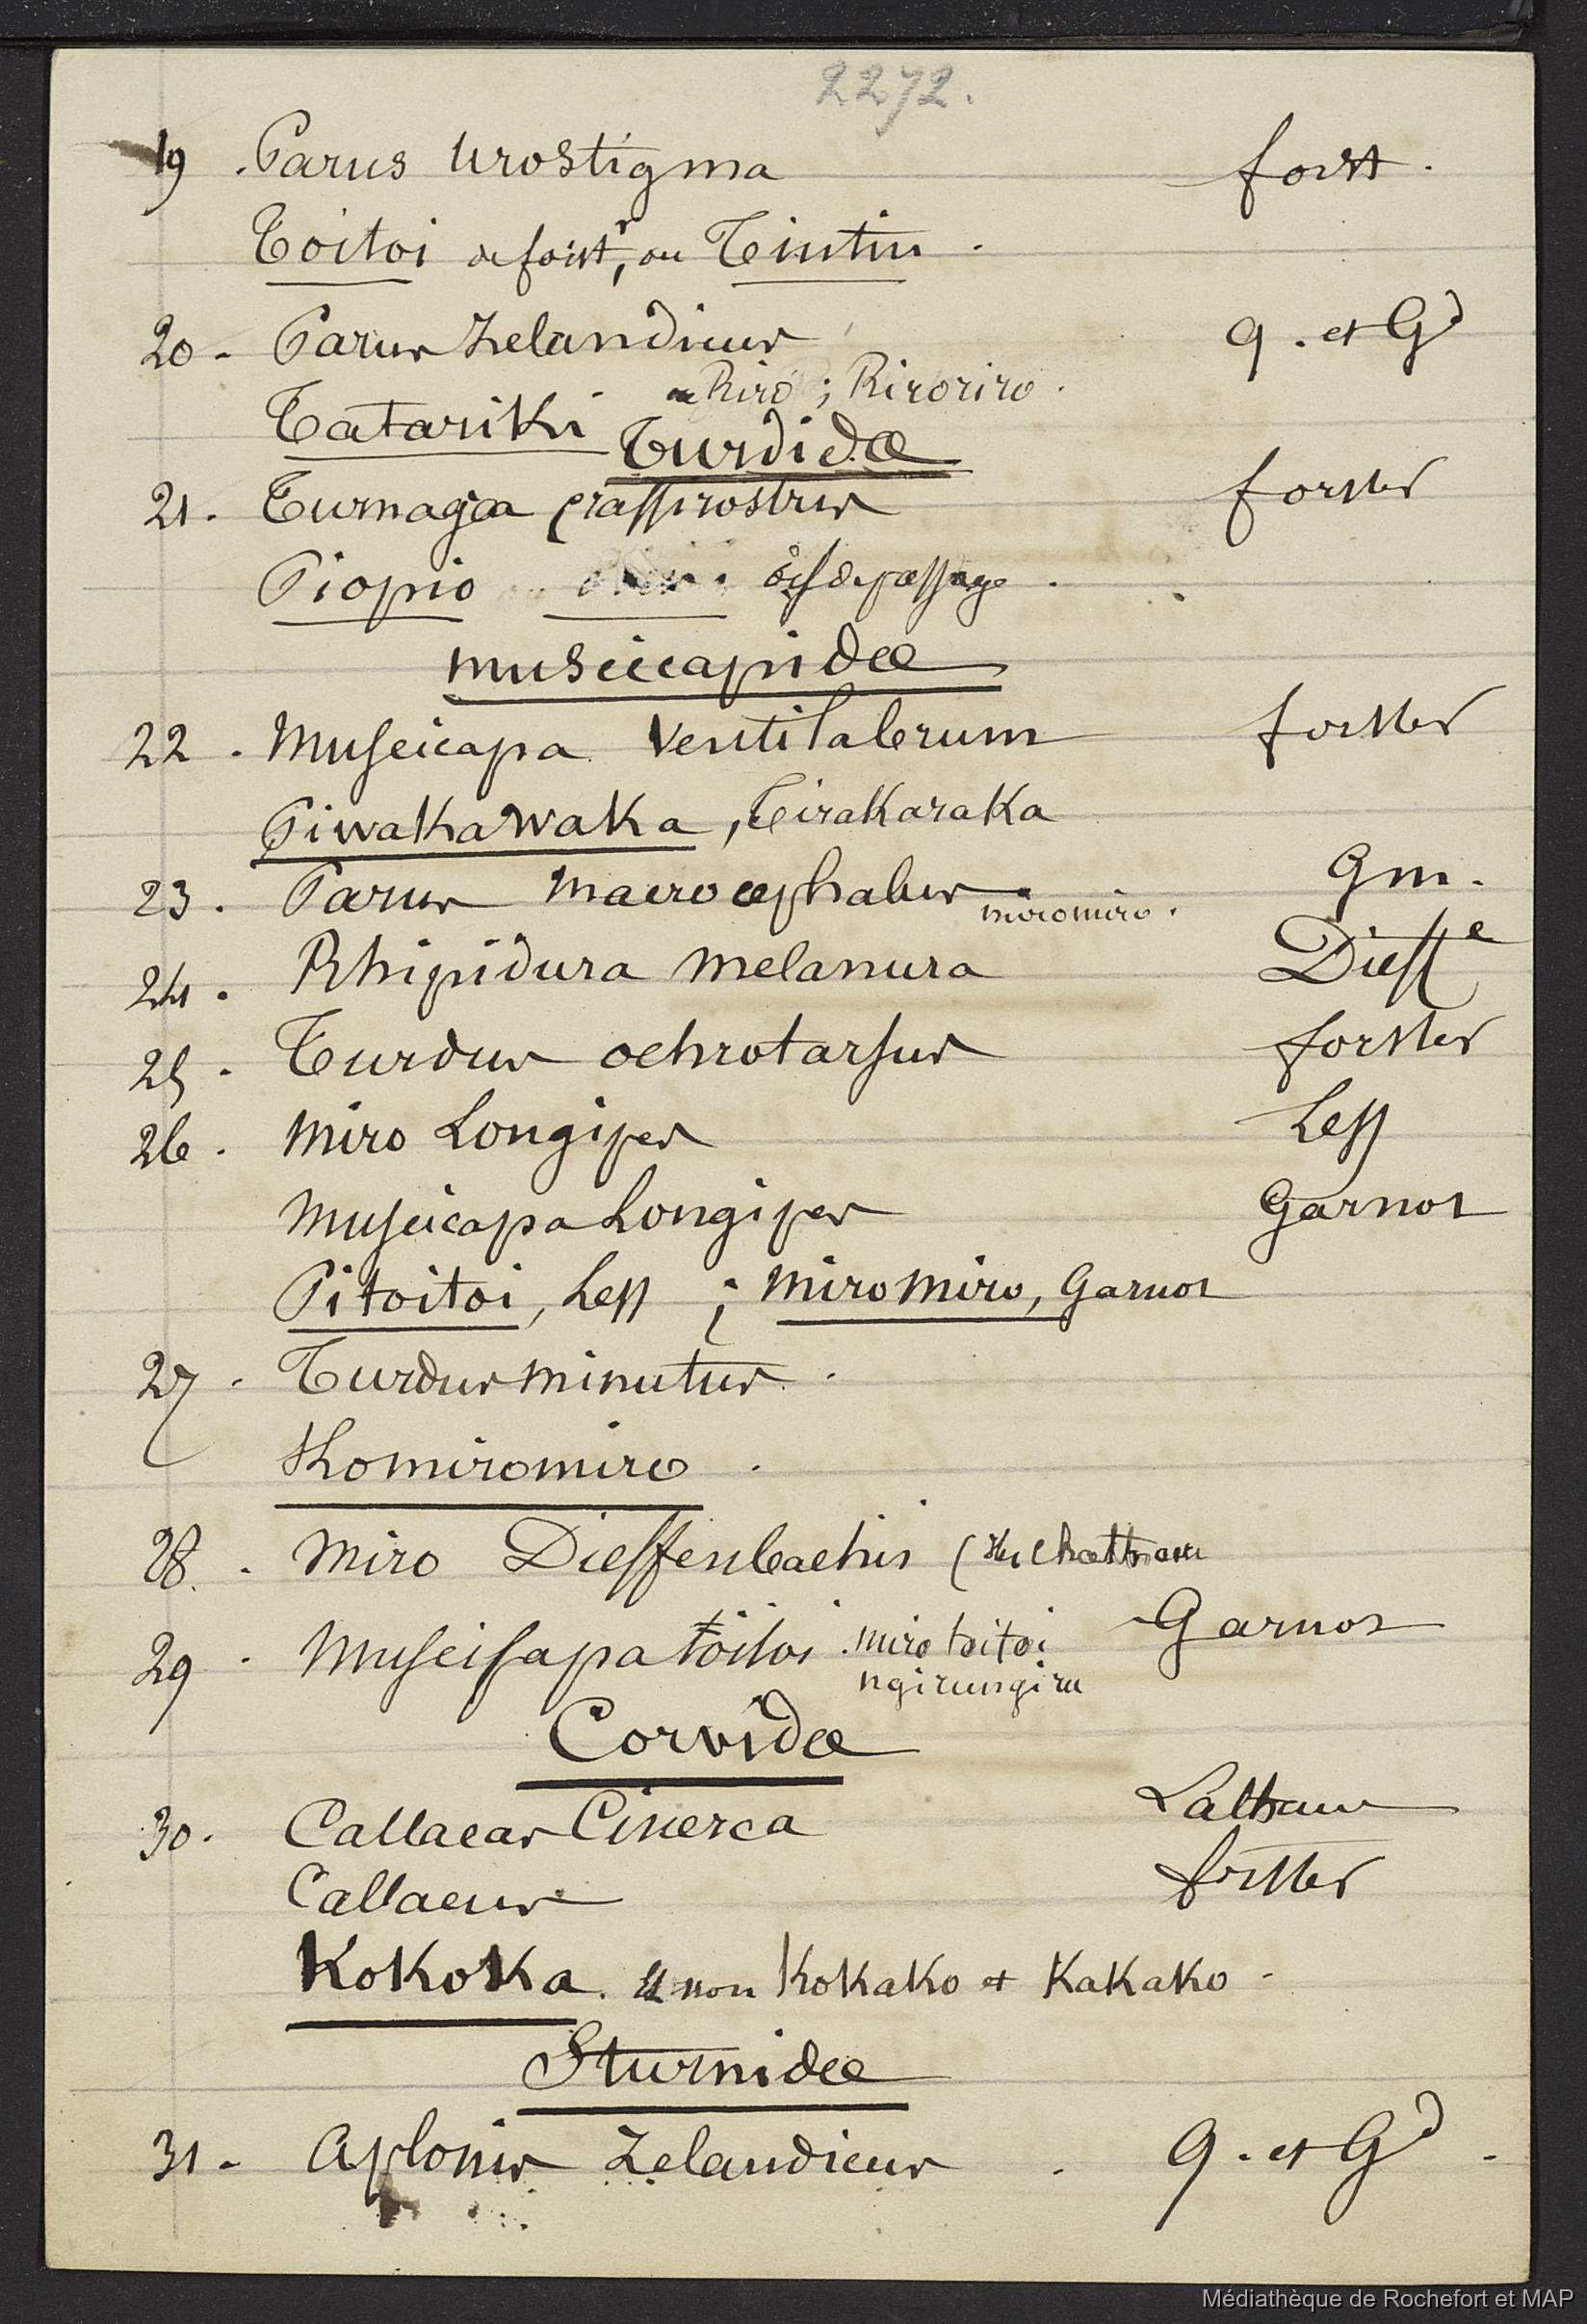 2272.
19 . Parus Urostigma forst .
Toitoi de forstr, ou Tintin .
20 - Parus Zelandicus q . et Gd
ou Riro ; Riroriro .
Tatariki
Turdidæ
21 . Turnagra crassirostris forster
Piopio ois de passage .
muscicapidæ
22 . Muscicapa Ventilabrum forster
Piwakawaka , Tirakaraka
23 . Parus macrocephalus Gm .
miromiro .
24 . Rhipidura melanura Dieffe
25 . Turdus ochrotarsus forster
26 . Miro Longipes Less
Muscicapa Longipes Garnot
Pitoitoi , Less ; miromiro , Garnot
27 . Turdus minutus .
Komiromiro .
28 . Miro Dieffenbachii (
29 . Muscicapa toitoi . miro toitoi Garnot
ngirungiru
Corvidæ
30 . Callaeas Cinerea Latham
Callaeus forster
Kokoka . et non Kokako et Kakako -
Sturnidæ
31 - Aplonis Zelandicus . q . et Gd -
Médiathèque de Rochefort et MAP